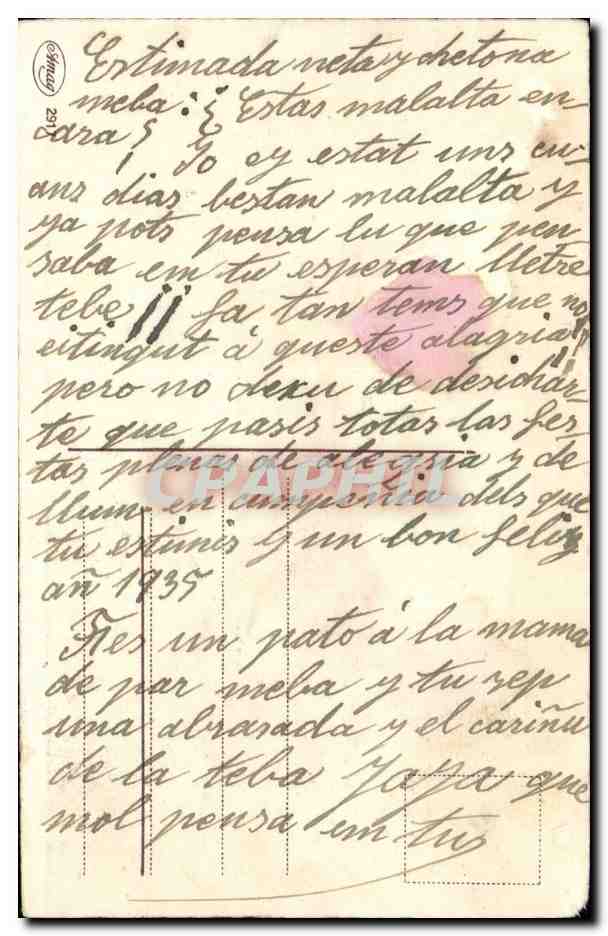 Amag
2917
Estimada neta y chetona
meba: ¿ Estas malalta en-
cara ? Jo ey estat uns cu-
ans dias bestan malalta y
ya pots pensa lu que pen
saba em tu esperan lletre
tebe !! fa tan tems que no
eitingut á queste alagria!!
pero no dexu de desichar-
te que pasis totas las fes-
tas plenas de alegria y de
llum en cumpenia dels que
tu estimis y un bon feliz
añ 1935
Fies un pato á la mama
de par meba y tu rep
una abrasada y el cariñu
de la teba YaYa que
mol pensa em tu
CPAPHIL